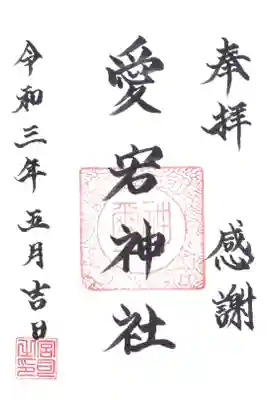 奉拝 感謝
愛宕神社
令和三年五月吉日